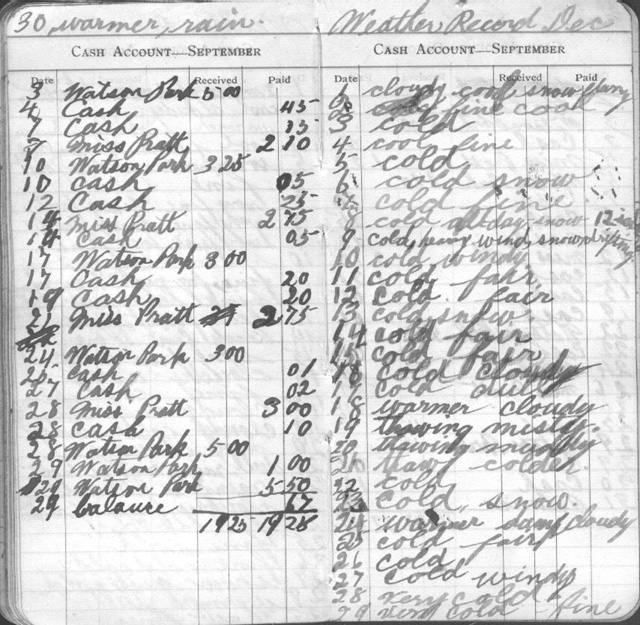 30, warmer, rain.
CASH ACCOUNT—SEPTEMBER
Date Received Paid
3 Watson Park 5 00
4 Cash 45
7 Cash 15
7 Miss Pratt 2 10
10 Watson Park 3 25
10 Cash 05
12 Cash 25
14 Miss Pratt 2 75
14 Cash 05
17 Watson Park 3 00
17 Cash 20
19 Cash 20
21 Miss Pratt 2 75
24 Watson Park 3 00
25 Cash 01
27 Cash 02
28 Miss Pratt 3 00
28 Cash 10
28 Watson Park 5 00
29 Watson Park 1 00
29 Watson Park 5 50
29 balance 67
19 25 19 25
Weather Record, Dec
CASH ACCOUNT—SEPTEMBER
Date Received Paid
1 cloudy cool snow
fine cool
3 cold
4 cool fine
5 cold
6 cold snow
7 cold fine
8 cold all day snow 12
9 cold, heavy wind, snow drifting
10 cold windy
11 cold fair
12 cold fair
13 cold snow.
14 cold fair
15 cold fair
16 cold cloudy
17 cold dull
18 warmer cloudy
19 thawing misty.
20 thawing muddy
21 thaw colder.
22 cold
23 cold, snow.
24 warmer damp cloudy
25 cold fair
26 cold
27 cold windy
28 very cold
29 very cold - fine